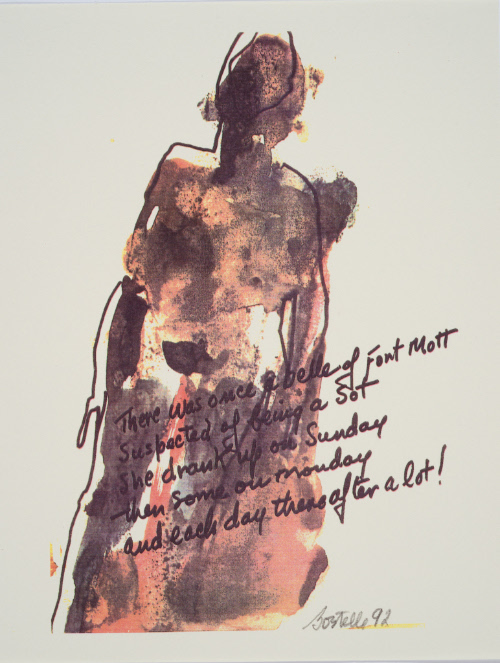 There was once a belle of Font Mott
Suspected of being a Sot
She drank up on Sunday
then some on monday
and each day thereafter a lot!
Bostelle 92